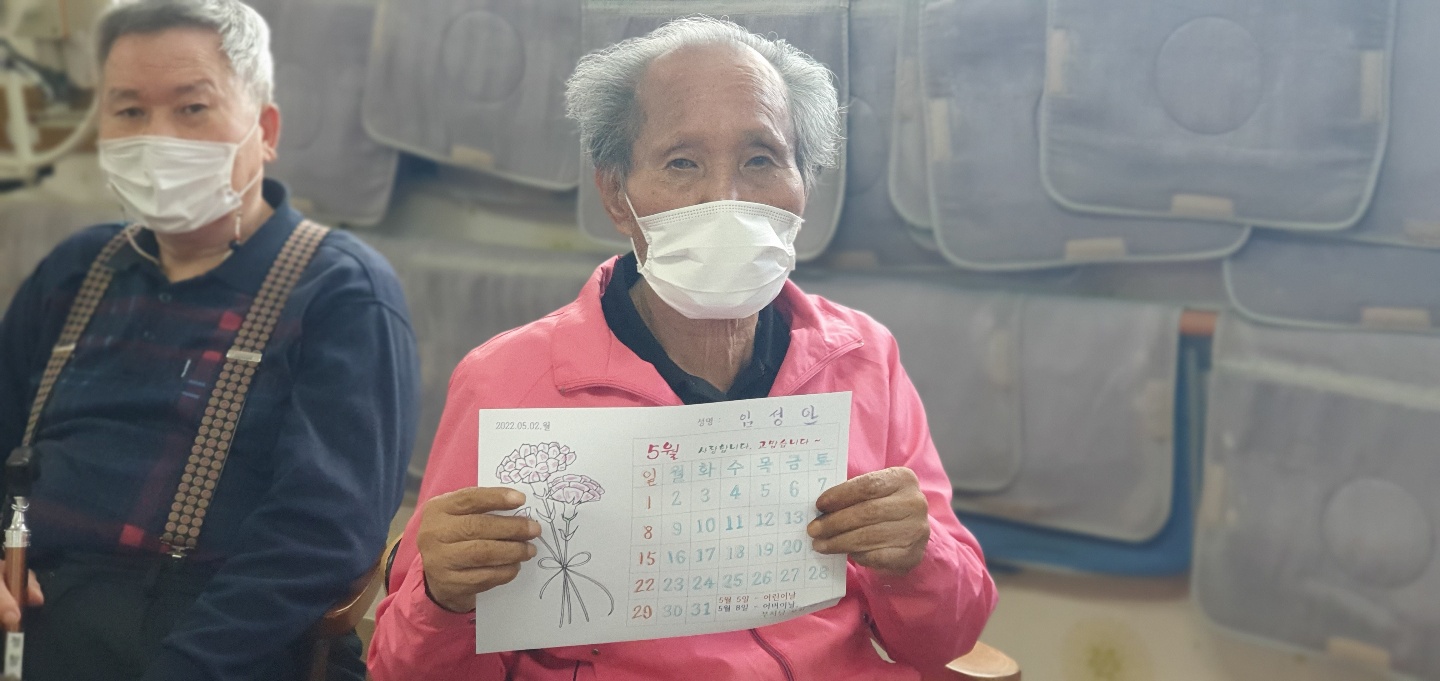 2022.05.02.월
성명 : 임 성 안
5월 사랑합니다. 고맙습니다 ~
일 월 화 수 목 금 토
1 2 3 4 5 6 7
8 9 10 11 12 13
15 16 17 18 19 20
22 23 24 25 26 27 28
29 30 31 5월 5일 - 어린이날
5월 8일 - 어버이날